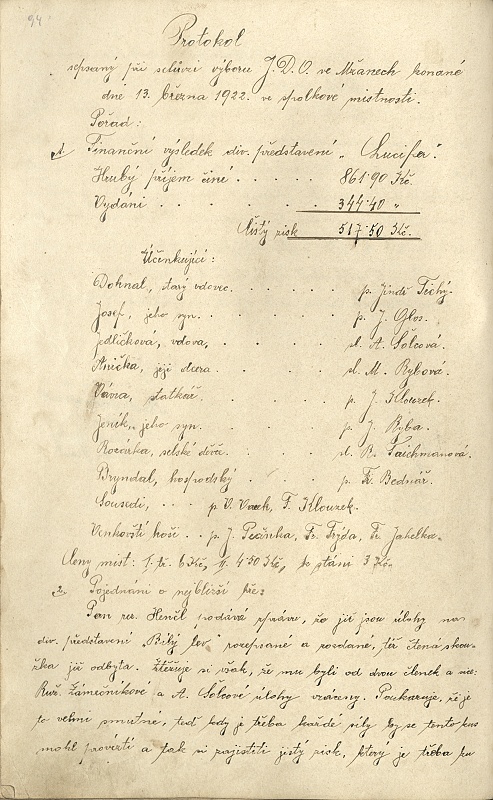 94
Protokol
sepsaný při schůzi výboru J.D.O. ve Mžanech konané
dne 13. března 1922. ve spolkové místnosti.
Pořad:
1. Finanční výsledek div. představení „Lucifer“.
Hrubý příjem činí . . . . . 861·90 Kč.
Vydání . . . . . . 344·40 „
Čistý zisk 517·50 Kč.
Účinkující:
Dohnal, starý vdovec . . . . p. Jindř. Tichý.
Josef, jeho syn . . . . . p. J. Glos.
Jedličková, vdova, . . . . sl. A. Šolcová.
Anička, její dcera . . . . sl. M. Rybova.
Vávra, statkář . . . . p. J. Klouzek.
Jeník, jeho syn . . . . p. J. Ryba.
Rozárka, selské děvče . . . . sl. R. Taichmanová.
Bryndal, hospodský . . . . p. Fr. Bednář.
Sousedi, . . . p. V. Vaněk, F. Klouzek.
Venkovští hoši . . p. J. Peřinka, Fr. Frýda, Fr. Jahelka.
Ceny míst: I. tř. 6 Kč, II. 4·50 Kč, k stání 3 Kč.
2. Pojednání o nejbližší hře:
Pan rež. Henčl podává zprávu, že již jsou úlohy na
div. představení „Bílý lev“ rozepsané a rozdané, též čtená zkou-
ška již odbyta. Stěžuje si však, že mu byli od dvou členek a sice
Ruž. Zámečníkové a A. Šolcové úlohy vráceny. Poukazuje, že je
to velmi smutné, teď kdy je třeba každé síly by se tento kus
mohl provésti a tak si zajistiti jistý zisk, který je třeba ku